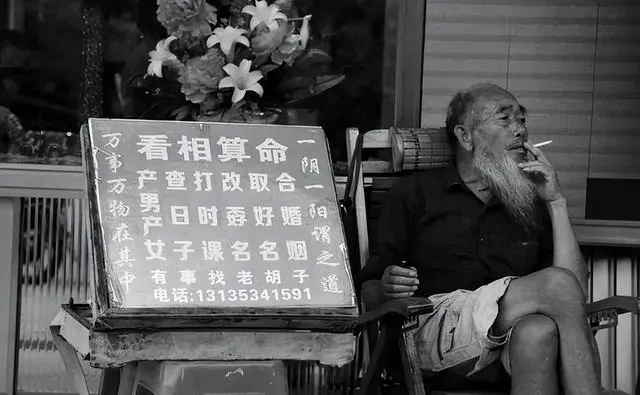 看相算命
一阴一阳谓之道
万事万物在其中
产男产女
查日子
打时课
改孬名
取好名
合婚姻
有事找老胡子
电话:13135341591